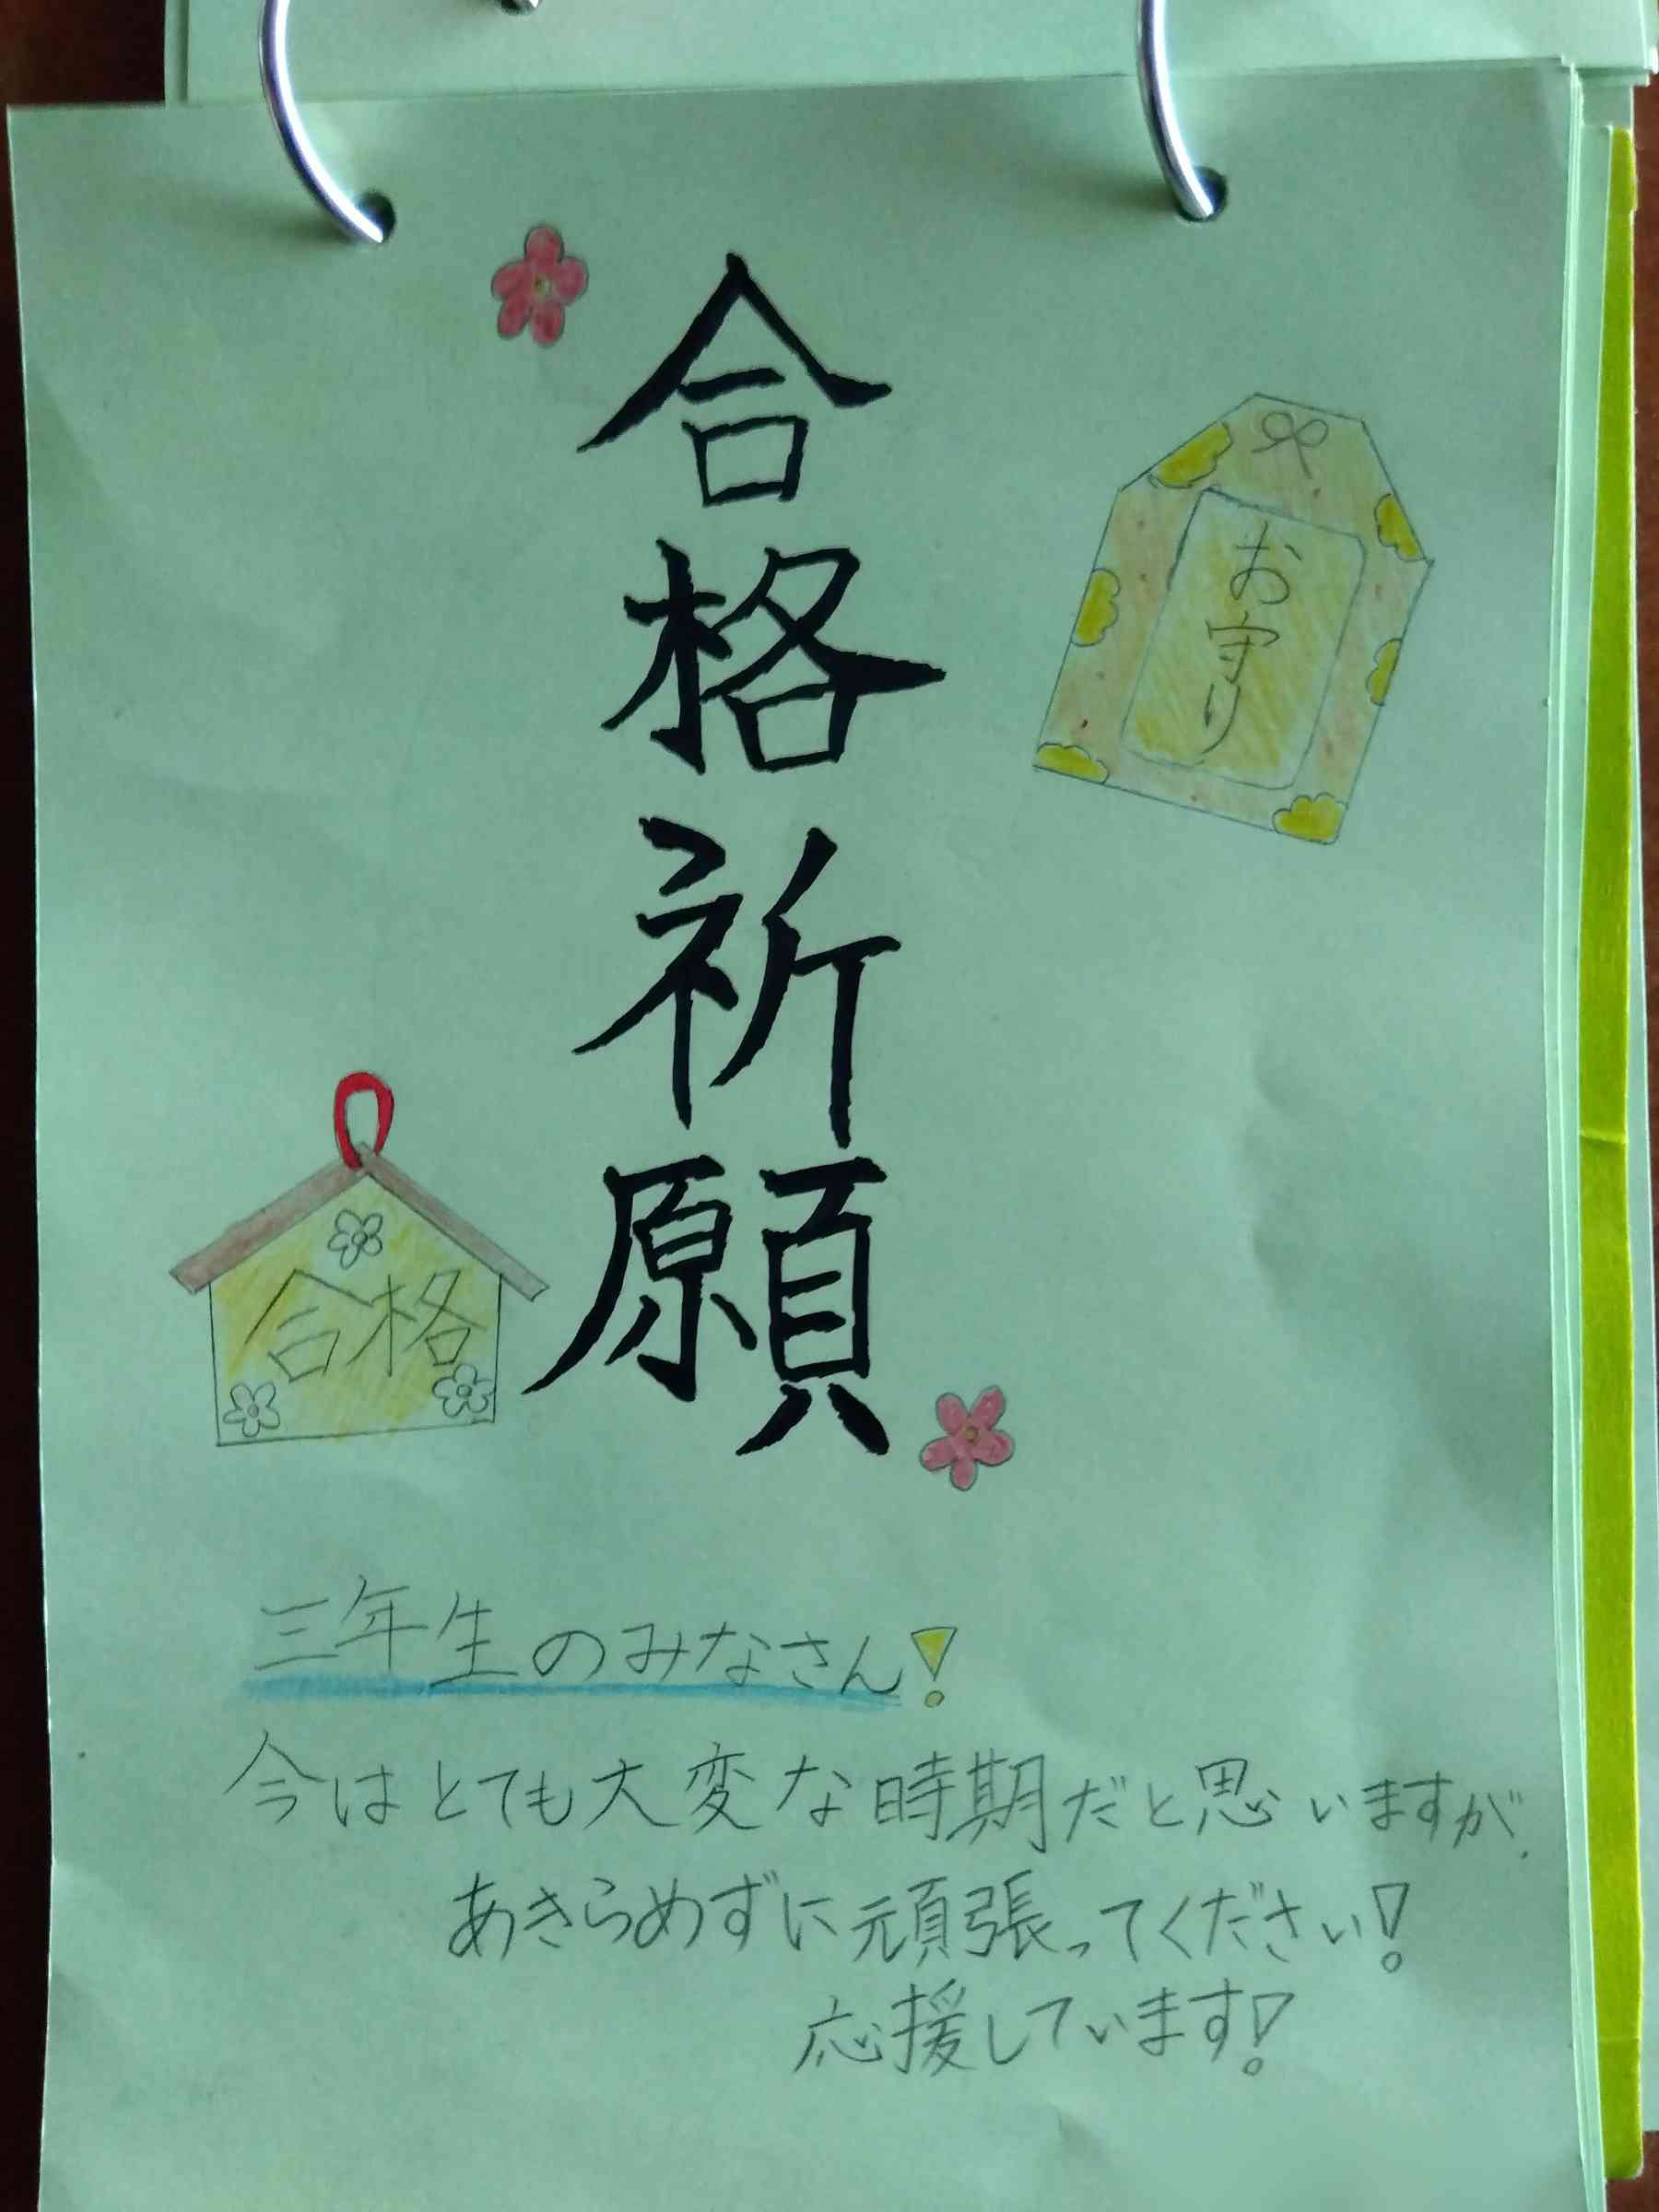 合格祈願
お守り
合格
三年生のみなさん!
今はとても大変な時期だと思いますが、
あきらめずに頑張ってください!
応援しています!